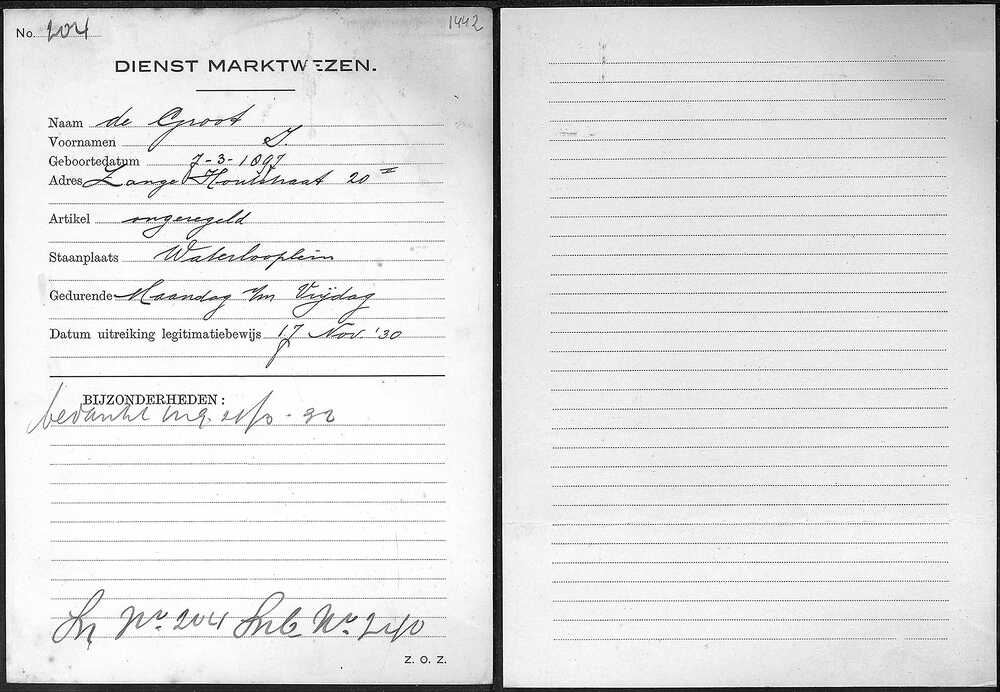 No. 204
1442
DIENST MARKTWEZEN.
Naam de Groot
Voornamen J.
Geboortedatum 7-3-1897
Adres Lange Houtstraat 20 II
Artikel ongeregeld
Staanplaats Waterlooplein
Gedurende Maandag t/m Vrijdag
Datum uitreiking legitimatiebewijs 17 Nov. '30
BIJZONDERHEDEN:
bedankt
No. 204 No. 240
Z. O. Z.